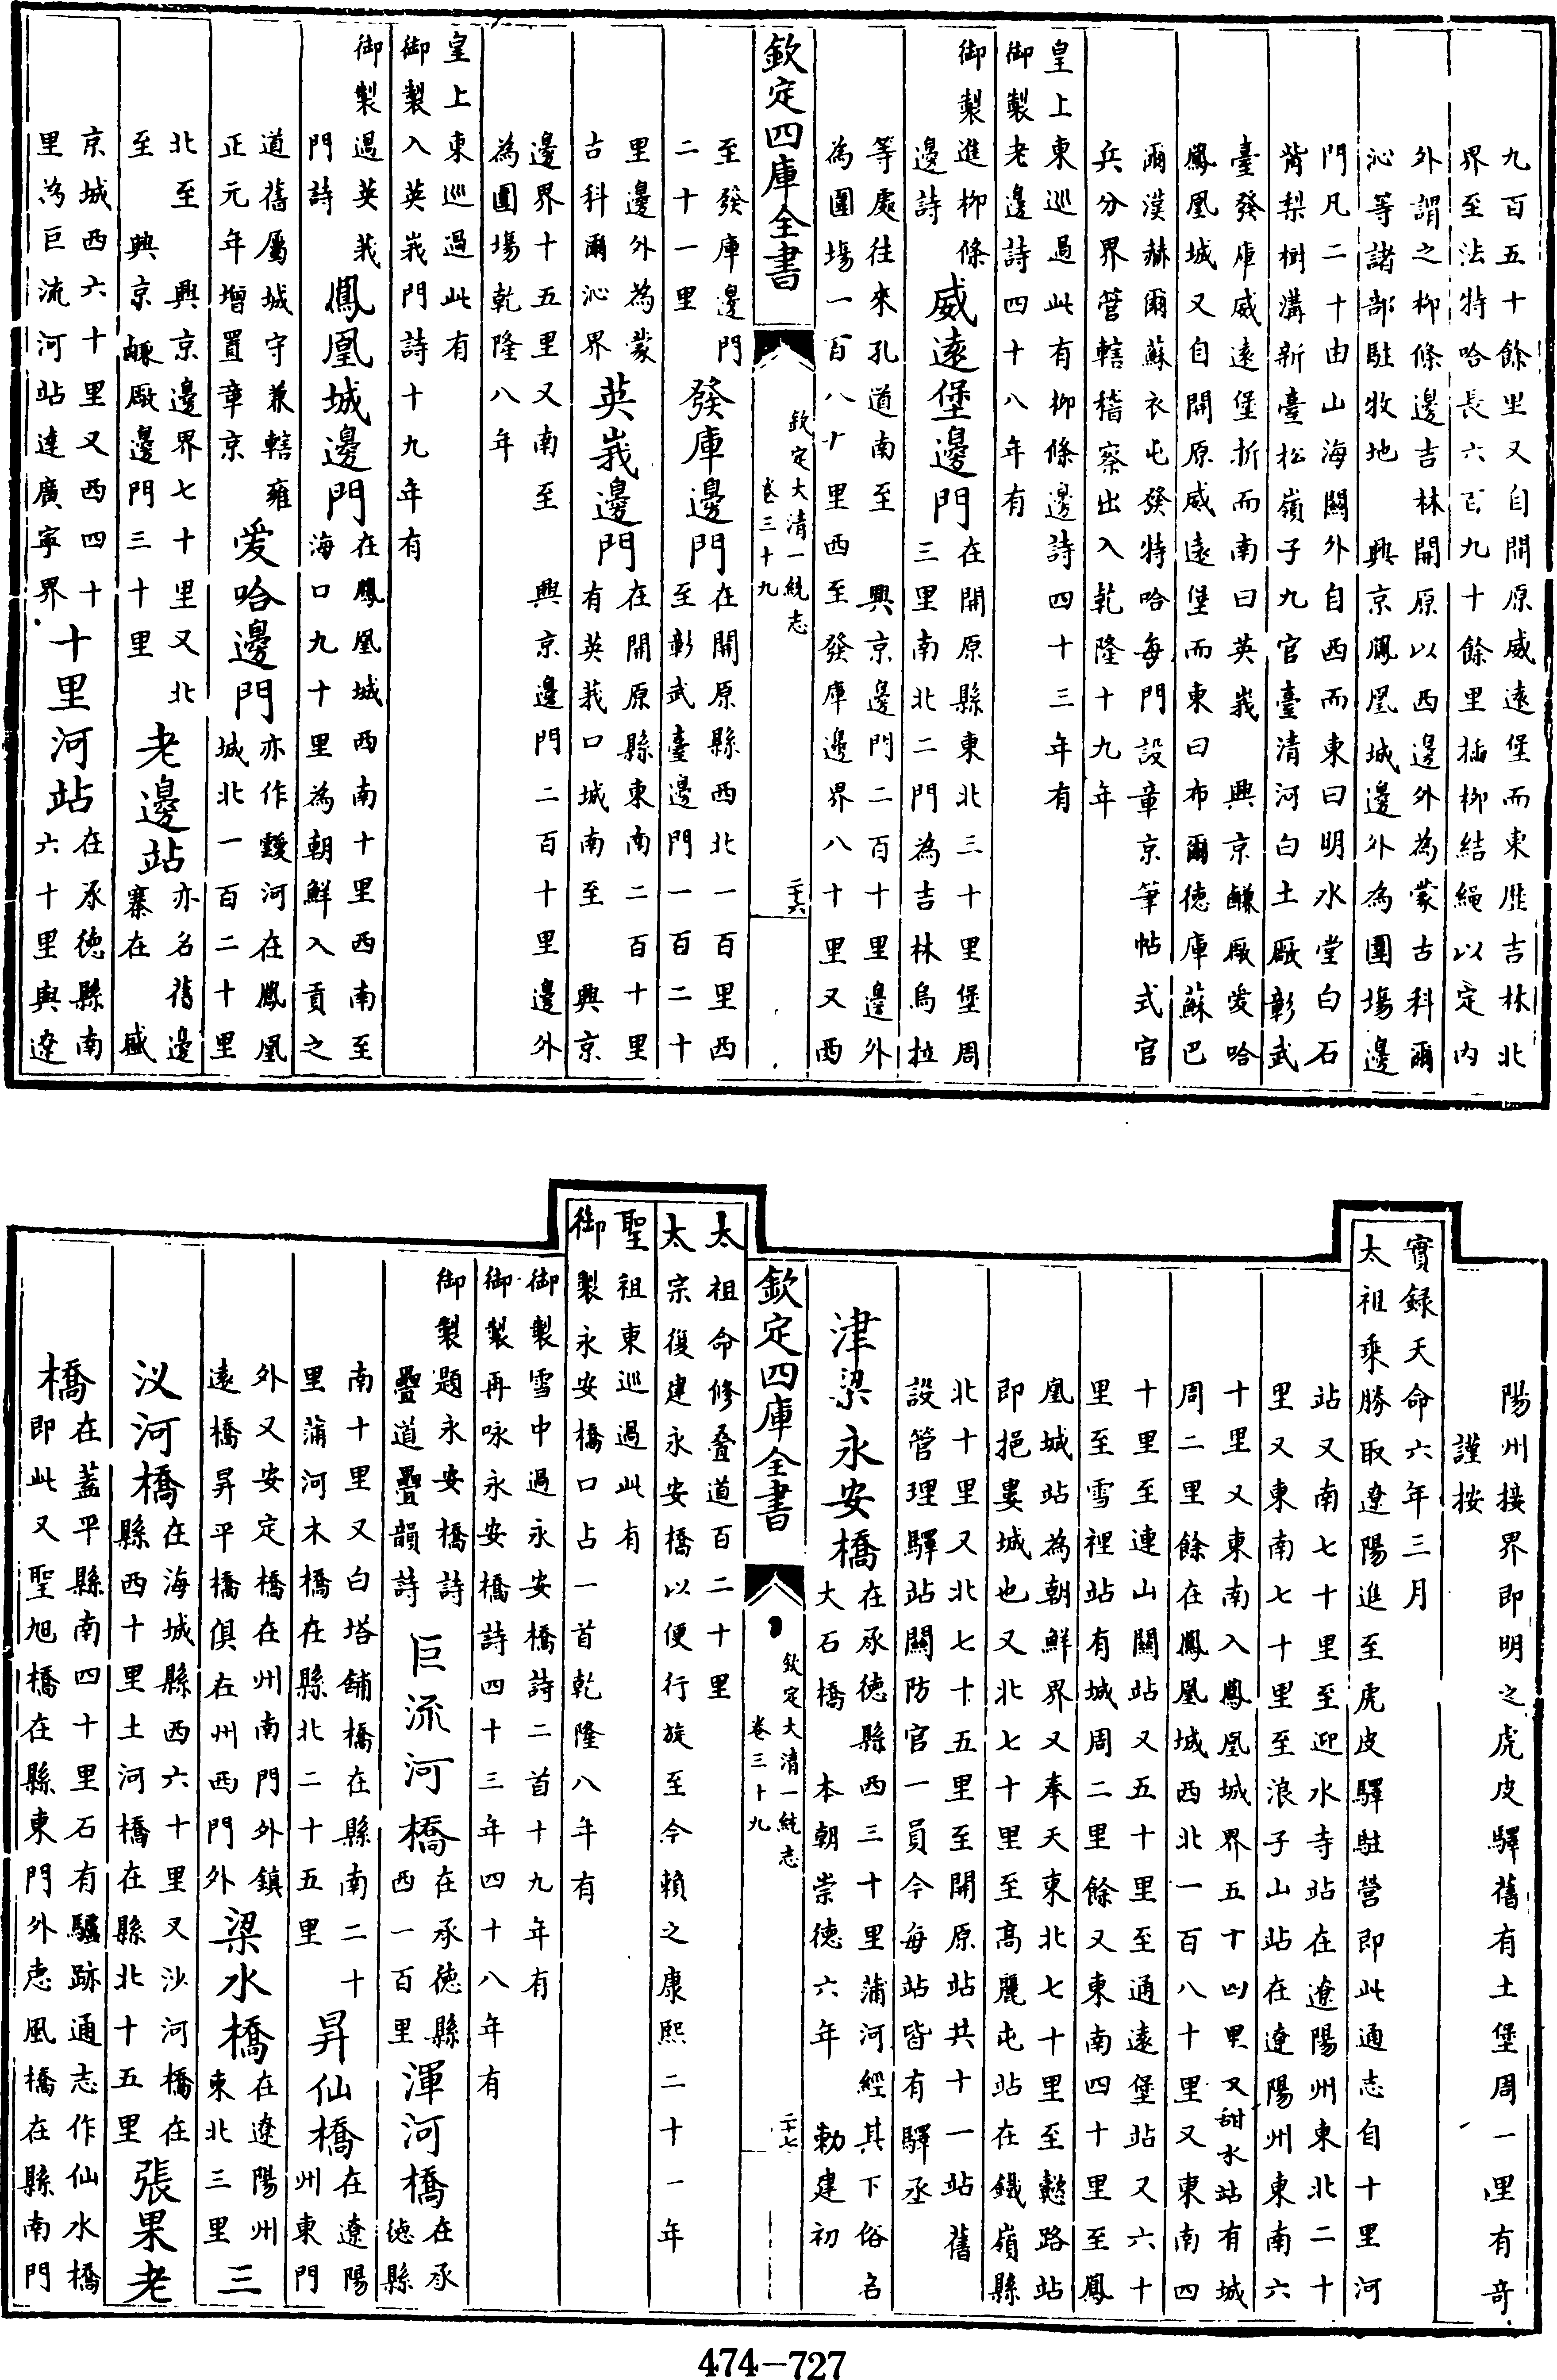 九百五十餘里又自開原威遠堡而東厯吉林北
界至法特哈長六百九十餘里插柳結繩以定內
外謂之柳條邊吉林開原以西邊外為蒙古科爾
沁等諸部駐牧地　興京鳳凰城邊外為圍場邊
門凡二十由山海關外自西而東曰明水堂白石
觜梨樹溝新臺松嶺子九官臺清河白土厰彰武
臺發庫威遠堡折而南曰英峩　興京鹻厰愛哈
鳳凰城又自開原威遠堡而東曰布爾德庫蘇巴
爾漢赫爾蘇衣屯發特哈每門設章京筆帖式官
兵分界管轄稽察出入乾隆十九年
皇上東巡過此有柳條邊詩四十三年有
御製老邊詩四十八年有
御製進柳條
邊詩
威遠堡邊門
在開原縣東北三十里堡周
三里南北二門為吉林烏拉
等處往來孔道南至　興京邊門二百十里邊外
為圍場一百八十里西至發庫邊界八十里又西
欽定四庫全書
欽定大清一統志
卷三十九
二十六
至發庫邊門
二十一里
發庫邊門
在開原縣西北一百里西
至彰武臺邊門一百二十
里邊外為蒙
古科爾沁界
英峩邊門
在開原縣東南二百十里
有英莪口城南至　興京
邊界十五里又南至　興京邊門二百十里邊外
為圍場乾隆八年
皇上東巡過此有
御製入英峩門詩十九年有
御製過英莪
門詩
鳳凰城邊門
在鳳凰城西南十里西南至
海口九十里為朝鮮入貢之
道舊屬城守兼轄雍
正元年增置章京
愛哈邊門
亦作靉河在鳳凰
城北一百二十里
北至　興京邊界七十里又北
至　興京鹻厰邊門三十里
老邊站
亦名舊邊
寨在　盛
京城西六十里又西四十
里為巨流河站達廣寧界
十里河站
在承德縣南
六十里與遼
陽州接界即明之虎皮驛舊有土堡周一里有奇
謹按
實錄天命六年三月
太祖乘勝取遼陽進至虎皮驛駐營即此通志自十里河
站又南七十里至迎水寺站在遼陽州東北二十
里又東南七十里至浪子山站在遼陽州東南六
十里又東南入鳳凰城界五十四里又甜水站有城
周二里餘在鳳凰城西北一百八十里又東南四
十里至連山關站又五十里至通遠堡站又六十
里至雪裡站有城周二里餘又東南四十里至鳳
凰城站為朝鮮界又奉天東北七十里至懿路站
即挹婁城也又北七十里至高麗屯站在鐵嶺縣
北十里又北七十五里至開原站共十一站　舊
設管理驛站關防官一員今每站皆有驛丞
津梁永安橋
在承德縣西三十里蒲河經其下俗名
大石橋　本朝崇德六年　勅建初
欽定四庫全書
欽定大清一統志
卷三十九
二十七
太祖命修叠道百二十里
太宗復建永安橋以便行旋至今賴之康熙二十一年
聖祖東巡過此有
御製永安橋口占一首乾隆八年有
御製雪中過永安橋詩二首十九年有
御製再咏永安橋詩四十三年四十八年有
御製題永安橋詩
疊道疊韻詩
巨流河橋
在承德縣
西一百里
渾河橋
在承
德縣
南十里又白塔舖橋在縣南二十
里蒲河木橋在縣北二十五里
昇仙橋
在遼陽
州東門
外又安定橋在州南門外鎮
遠橋昇平橋俱在州西門外
梁水橋
在遼陽州
東北三里
三
汊河橋
在海城縣西六十里又沙河橋在
縣西十里土河橋在縣北十五里
張果老
橋
在蓋平縣南四十里石有驢跡通志作仙水橋
即此又聖旭橋在縣東門外悳風橋在縣南門
474-727